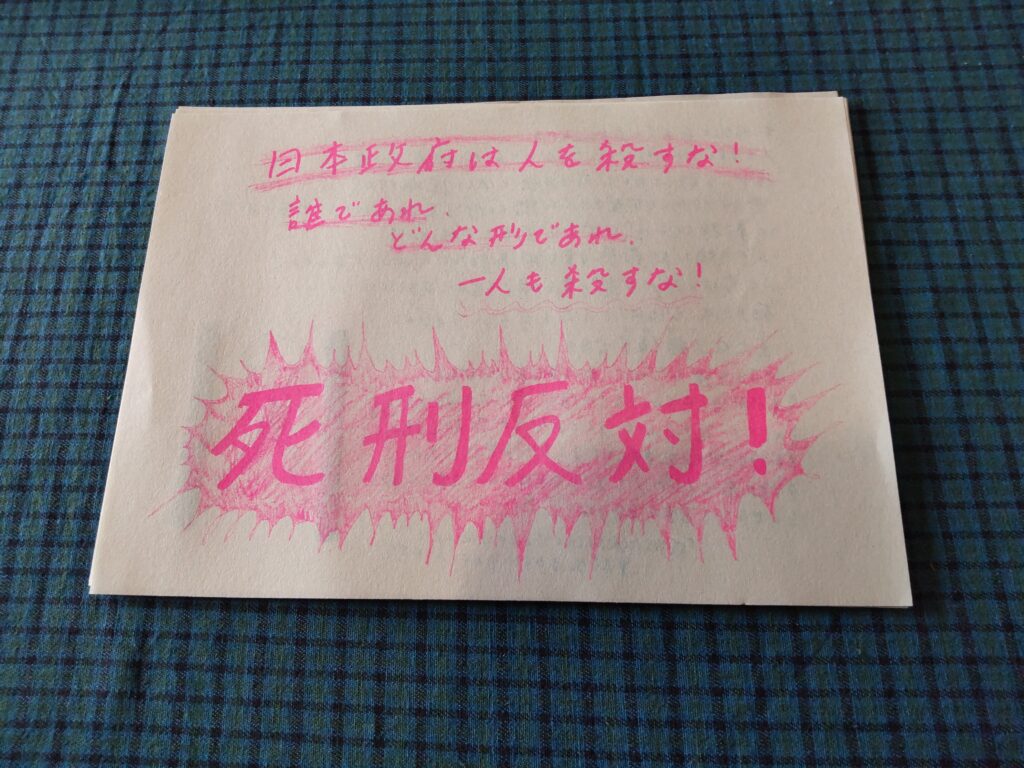 日本政府は人を殺すな！
誰であれ、
どんな形であれ、
一人も殺すな！
死刑反対！